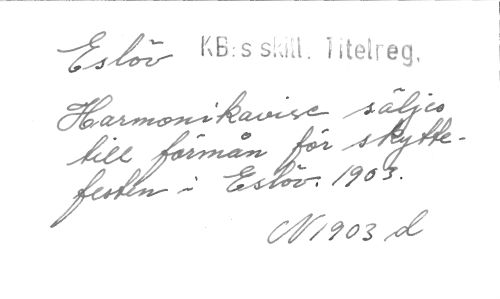 Eslöv KB:s skill. Titelreg.
Harmonikavise säljes
till förmån för skytte-
festen i Eslöv. 1903.
N 1903 d